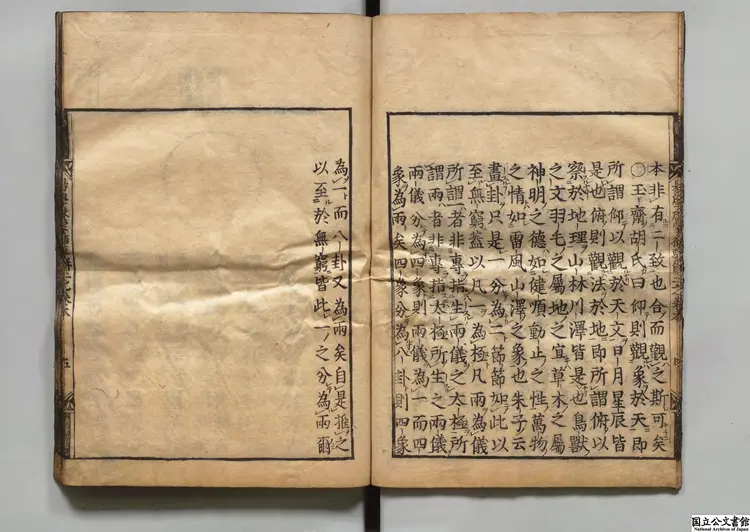 本非有二致也合而觀之斯可矣
○玉齋胡氏曰仰則觀象於天即
所謂仰以觀於天文日月星辰皆
是也俯則觀法於地即所謂俯以
察於地理山林川澤皆是也鳥獸
之文羽毛之屬地之宜草木之屬
神明之德如健順動止之性萬物
之情如雷風山澤之象也朱子云
畫卦只是一分為二節節如此以
至無窮蓋以凡一為極凡兩為儀
所謂一者非專指生兩儀之太極所
謂兩者非專指太極所生之兩儀
兩儀分為四象則兩儀為一而四
象為兩矣四象分為八卦則四象
為一而八卦又為兩矣自是推之
以至於無窮皆此一之分為兩爾
国立公文書館
National Archives of Japan